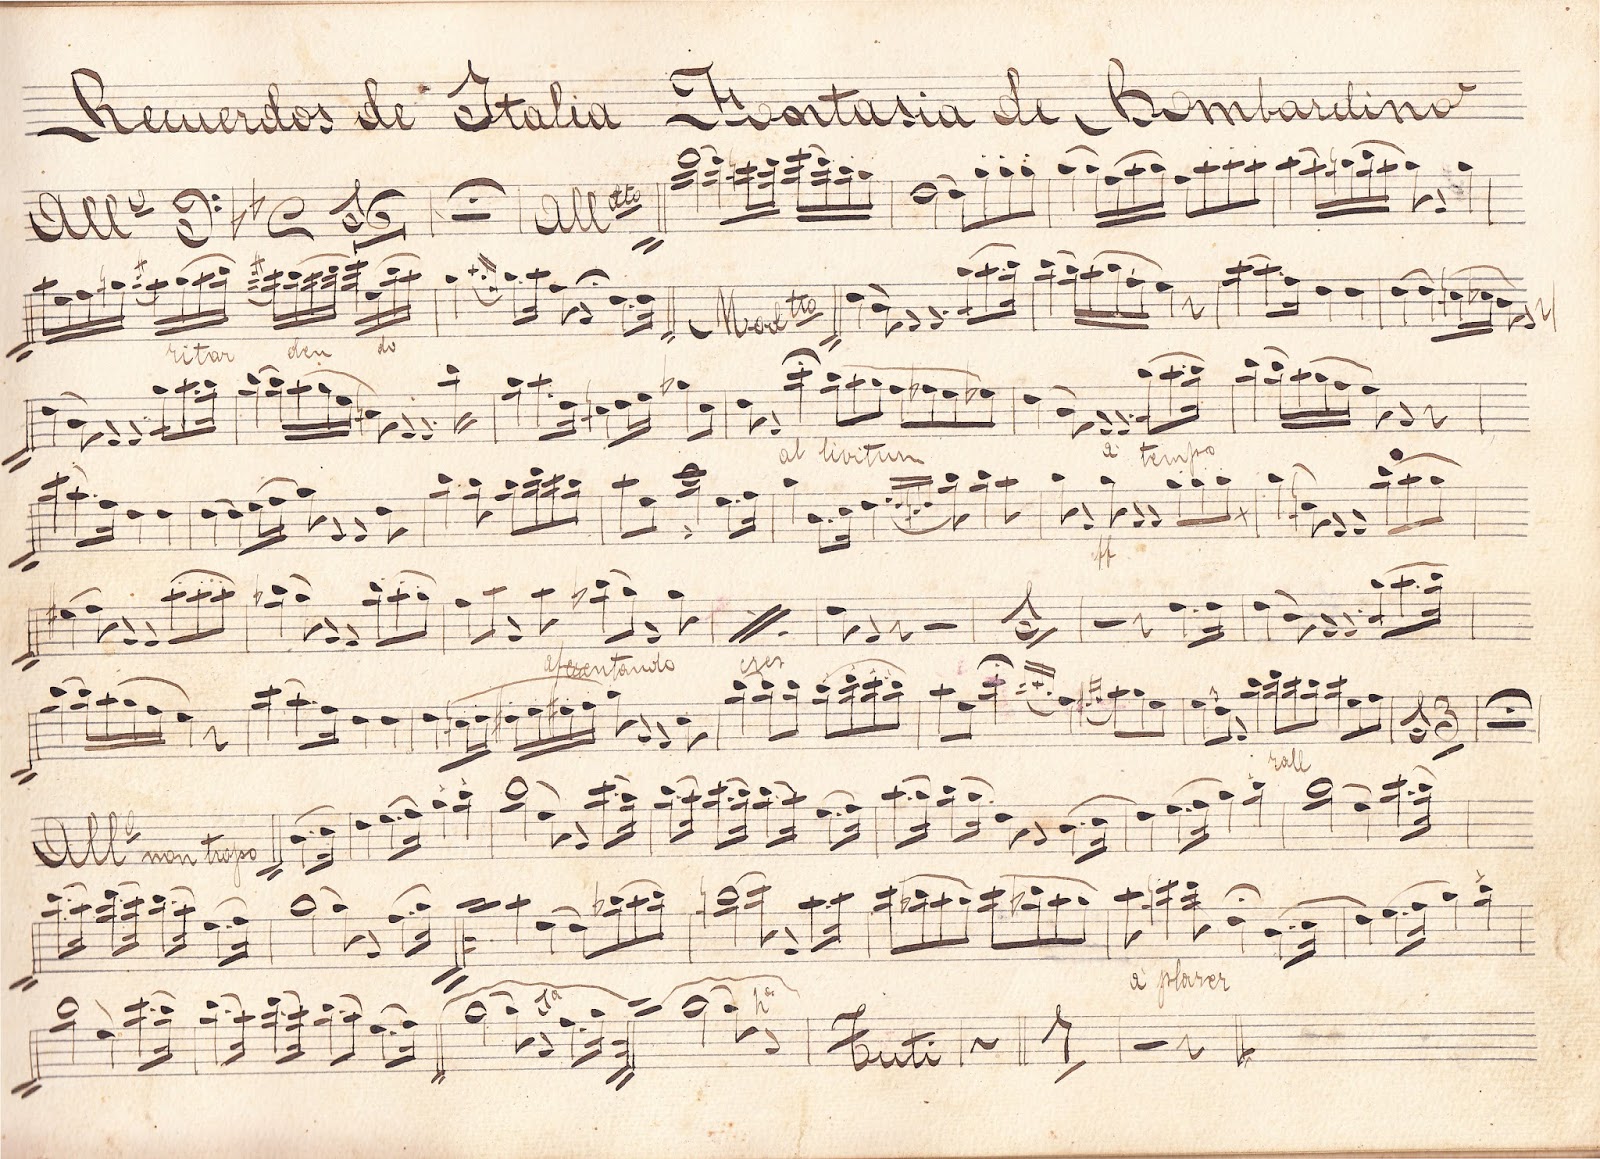 Recuerdos de Italia Fantasia de Bombardino
Allº Allᵗᵗᵒ
ritar den do
Modᵗᵗᵒ
al livitum a tempo
ff
apcentando
rall
Allº non tropo
a plazer
1ª 2ª
Tuti